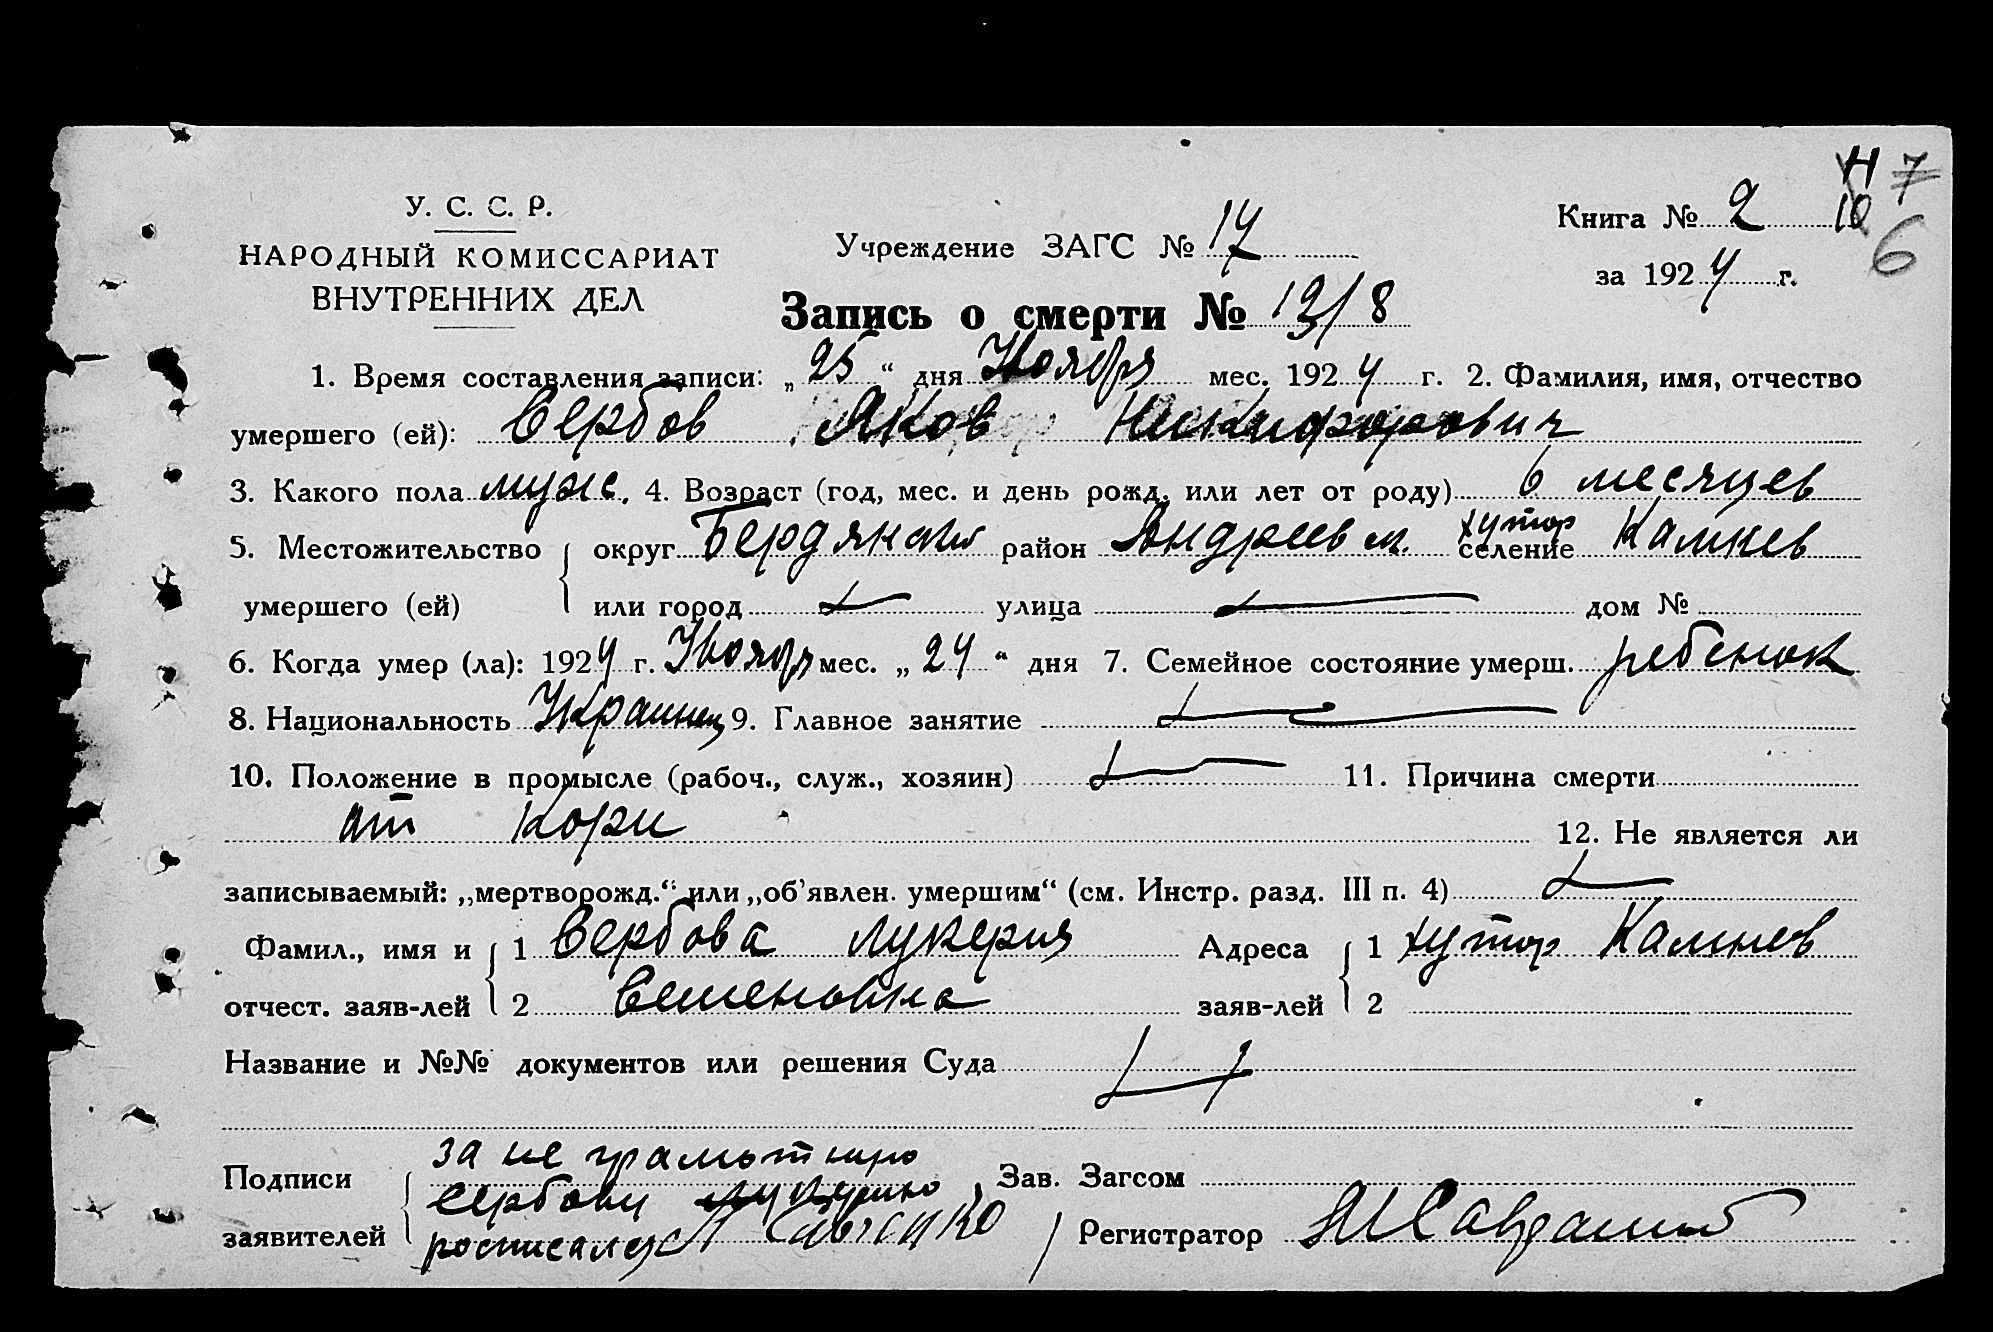 У. С. С. Р.
НАРОДНЫЙ КОМИССАРИАТ
ВНУТРЕННИХ ДЕЛ
Учреждение ЗАГС № 14
Книга № 2 10 7
за 1924 г. 6
Запись о смерти № 13/8
1. Время составления записи: „25“ дня Ноября мес. 1924 г. 2. Фамилия, имя, отчество
умершего (ей): Вербов Яков Никифорович
3. Какого пола муж. 4. Возраст (год, мес. и день рожд. или лет от роду) 6 месяцев
5. Местожительство округ Бердянский район Андреев селение хутор Камнев
умершего (ей) или город улица дом №
6. Когда умер (ла): 1924 г. Ноября мес. „24“ дня 7. Семейное состояние умерш. ребенок
8. Национальность Украинец 9. Главное занятие
10. Положение в промысле (рабоч., служ., хозяин) 11. Причина смерти
от Кори 12. Не является ли
записываемый: „мертворожд.“ или „об’явлен. умершим“ (см. Инстр. разд. III п. 4)
Фамил., имя и 1 Вербова Лукерия Адреса 1 хутор Камнев
отчест. заяв-лей 2 Семеновна заяв-лей 2
Название и №№ документов или решения Суда
Подписи за не грамотную Зав. Загсом
Вербову Лукерию
заявителей росписался Регистратор